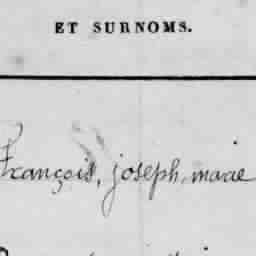 ET SURNOMS.
François, joseph, marie